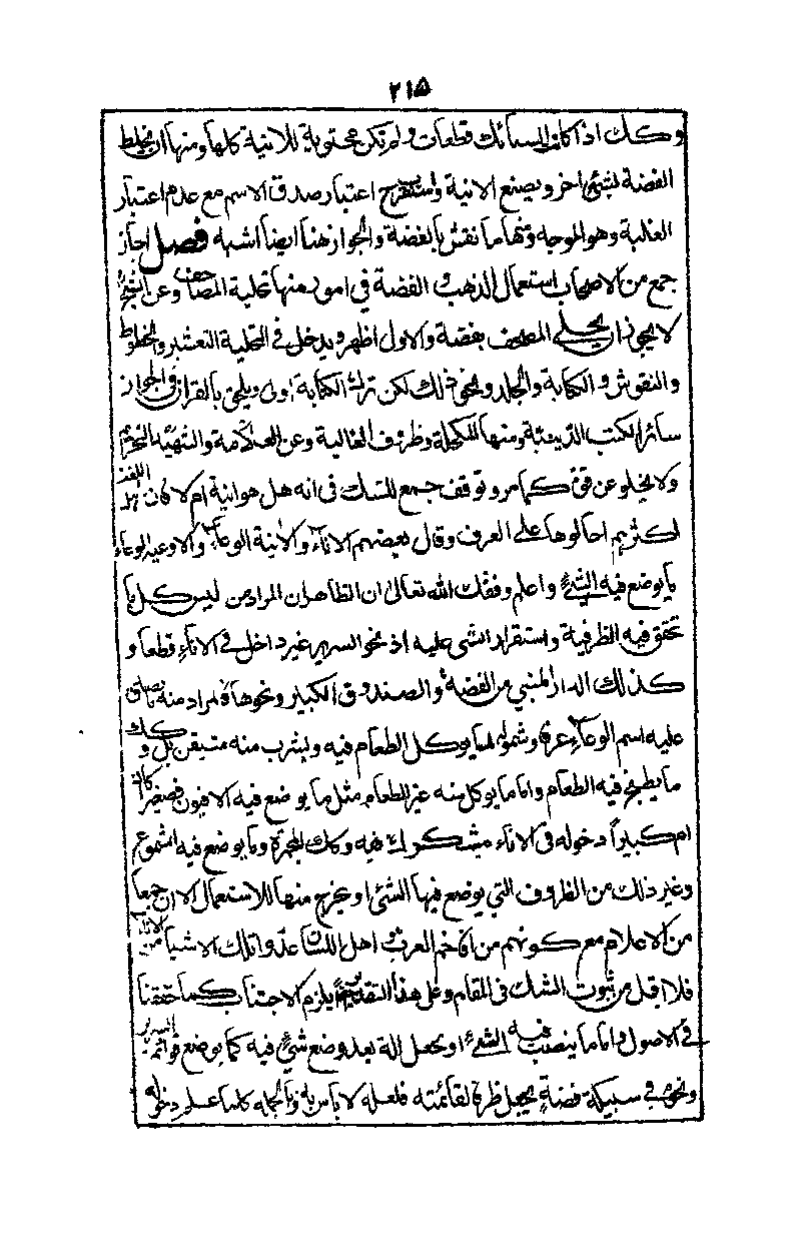 ٢١۵
وكك اذا كانت السبائك قطعات ولم تكن محتوية للانية كلها ومنها ان يخلط
الفضة بشئ اخر ويصنع الانية واستقرح اعتبار صدق الاسم مع عدم اعتبار
الغالبة وهو الموجه ومنها ما نقش بالفضة والجواز هنا ايضاً اشبه فصل اجاز
جمع من الاصحاب استعمال الذهب و الفضة في امور منها تحلية المصاحف وعن الشيخ
لا يجوز ان يحلى المصحف بفضة والاول اظهر ويدخل في التحلية التعشير والخطوط
والنقوش و الكتابة والجلد ونحو ذلك لكن ترك الكتابة اولى ويلحق بالقران في الجواز
سائر الكتب الدينية ومنها المكحلة وظروف الغالية وعن العلامة والشهيد التحريم
ولا يخلو عن قوة كما مر وتوقف جمع للشك في انه هل هو انية ام لا فان اهل اللغة
اكثرهم احالوها على العرف وقال بعضهم الاناء والانية الوعاء والاوعية الوعاء
ما يوضع فيه الشئ واعلم وفقك الله تعالى ان الظاهر ان المراد من ليس كل ما
تحقق فيه الظرفية واستقرار الشئ عليه اذ نحو السرير غير داخل في الاناء قطعا و
كذلك الدار المبني من الفضة والصندوق الكبير ونحوها فالمراد منه ما يصدق
عليه اسم الوعاء عرفا وشموله لما يوكل الطعام فيه ويشرب منه متيقن بل وكذلك
ما يطبخ فيه الطعام واما ما يوكل منه غير الطعام مثل ما يوضع فيه الافيون صغيرا كان
ام كبيراً دخوله في الاناء مشكوك فيه وكك المجمرة وما يوضع فيه المشموم
وغير ذلك من الظروف التي يوضع فيها الشئ او يخرج منها للاستعمال الا ان جمعا
من الاعلام مع كونهم من افاخم العرب و اهل اللسان عدوا تلك الاشيا من الاناء
فلا اقل من ثبوت الشك في المقام وعلى هذا التقدير يلزم الاجتناب كما حققنا
في الاصول واما ما ينصب فيه الشئ او يجعل الة بعد وضع شئ فيه كما يوضع قوائم السرير
ونحوه في سبيكة فضة يجعل ظرفا لقائمته فلعله لا باس به وبالجمله كلما علم دخوله